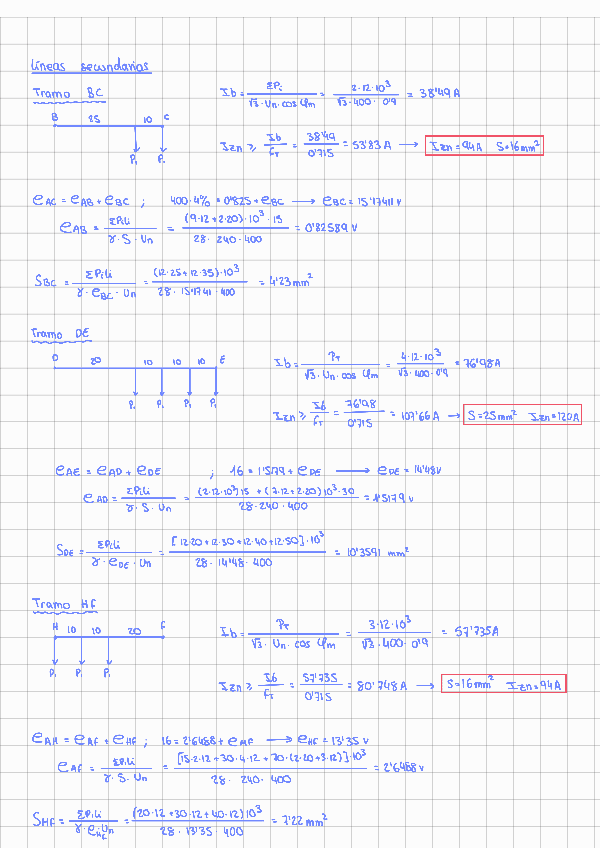 Líneas secundarias
Tramo BC
B 25 10 C
P₁ P.
Ib = ΣPi / √3·Un·cos φm = 2·12·10³ / √3·400·0'9 = 38'49 A
Izn ≥ Ib / fT = 38'49 / 0'715 = 53'83 A → Izn = 94A S=16mm²
eAC = eAB + eBC ; 400·4% = 0'825 + eBC → eBC = 15'17411 V
eAB = ΣPiLi / γ·S·Un = (9·12+2·20)·10³·15 / 28·240·400 = 0'82589 V
SBC = ΣPiLi / γ·eBC·Un = (12·25+12·35)·10³ / 28·15'1741·400 = 4'23 mm²
Tramo DE
D 20 10 10 10 E
P₁ P₁ P₁ P₁
Ib = PT / √3·Un·cos φm = 4·12·10³ / √3·400·0'9 = 76'98 A
Izn ≥ Ib / fT = 76'98 / 0'715 = 107'66 A → S=25mm² Izn=120A
eAE = eAD + eDE ; 16 = 1'579 + eDE → eDE = 14'48V
eAD = ΣPiLi / γ·S·Un = (2·12·10³)15 + (7·12+2·20)10³·30 / 28·240·400 = 1'5179 V
SDE = ΣPiLi / γ·eDE·Un = [12·20+12·30+12·40+12·50]·10³ / 28·14'48·400 = 10'3591 mm²
Tramo HF
H 10 10 20 F
P₁ P₁ P₁
Ib = PT / √3·Un·cos φm = 3·12·10³ / √3·400·0'9 = 57'735A
Izn ≥ Ib / fT = 57'735 / 0'715 = 80'748 A → S=16mm² Izn=94A
eAH = eAF + eHF ; 16 = 2'6488 + eHF → eHF = 13'35 V
eAF = ΣPiLi / γ·S·Un = [15·2·12+30·4·12+70·(2·20+3·12)]·10³ / 28·240·400 = 2'6488 V
SHF = ΣPiLi / γ·eHF·Un = (20·12+30·12+40·12)10³ / 28·13'35·400 = 7'22 mm²